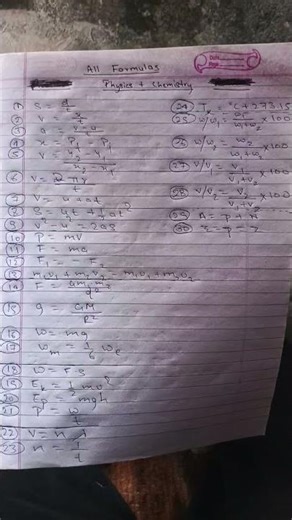 All Formulas
Physics & Chemistry
① S = d/t
② V = s/t
③ a = v-u/t
④ x = P₂ - P₁
⑤
⑥
⑦ V = u + at
⑧ S = ut + ½at²
⑨ v² = u² = 2as
⑩ P = mv
⑪ F = ma
⑫ F₁ = - F₂
⑬ m₁u₁ + m₂u₂ = m₁v₁ + m₂v₂
⑭ F =
⑮ g = GM/R²
⑯ W = mg
⑰ Wm = 1/6 We
⑱ W = F.S
⑲ Ek = ½mv²
⑳ Ep = mgh
㉑ P = W/t
㉒ V = n λ
㉓ n = 1/t
㉔ Tk = °C + 273.15
㉕ w/w₁ = × 100
㉖ w/w₂ = w₂/w₁+w₂ × 100
㉗ V/V₁ = V₁/V₁+V₂ × 100
㉘ V/V₂ = V₂/V₁+V₂ × 100
㉙ A = p + n
㉚